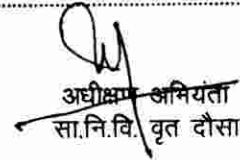 अधीक्षण अभियंता
सा.नि.वि. वृत दौसा